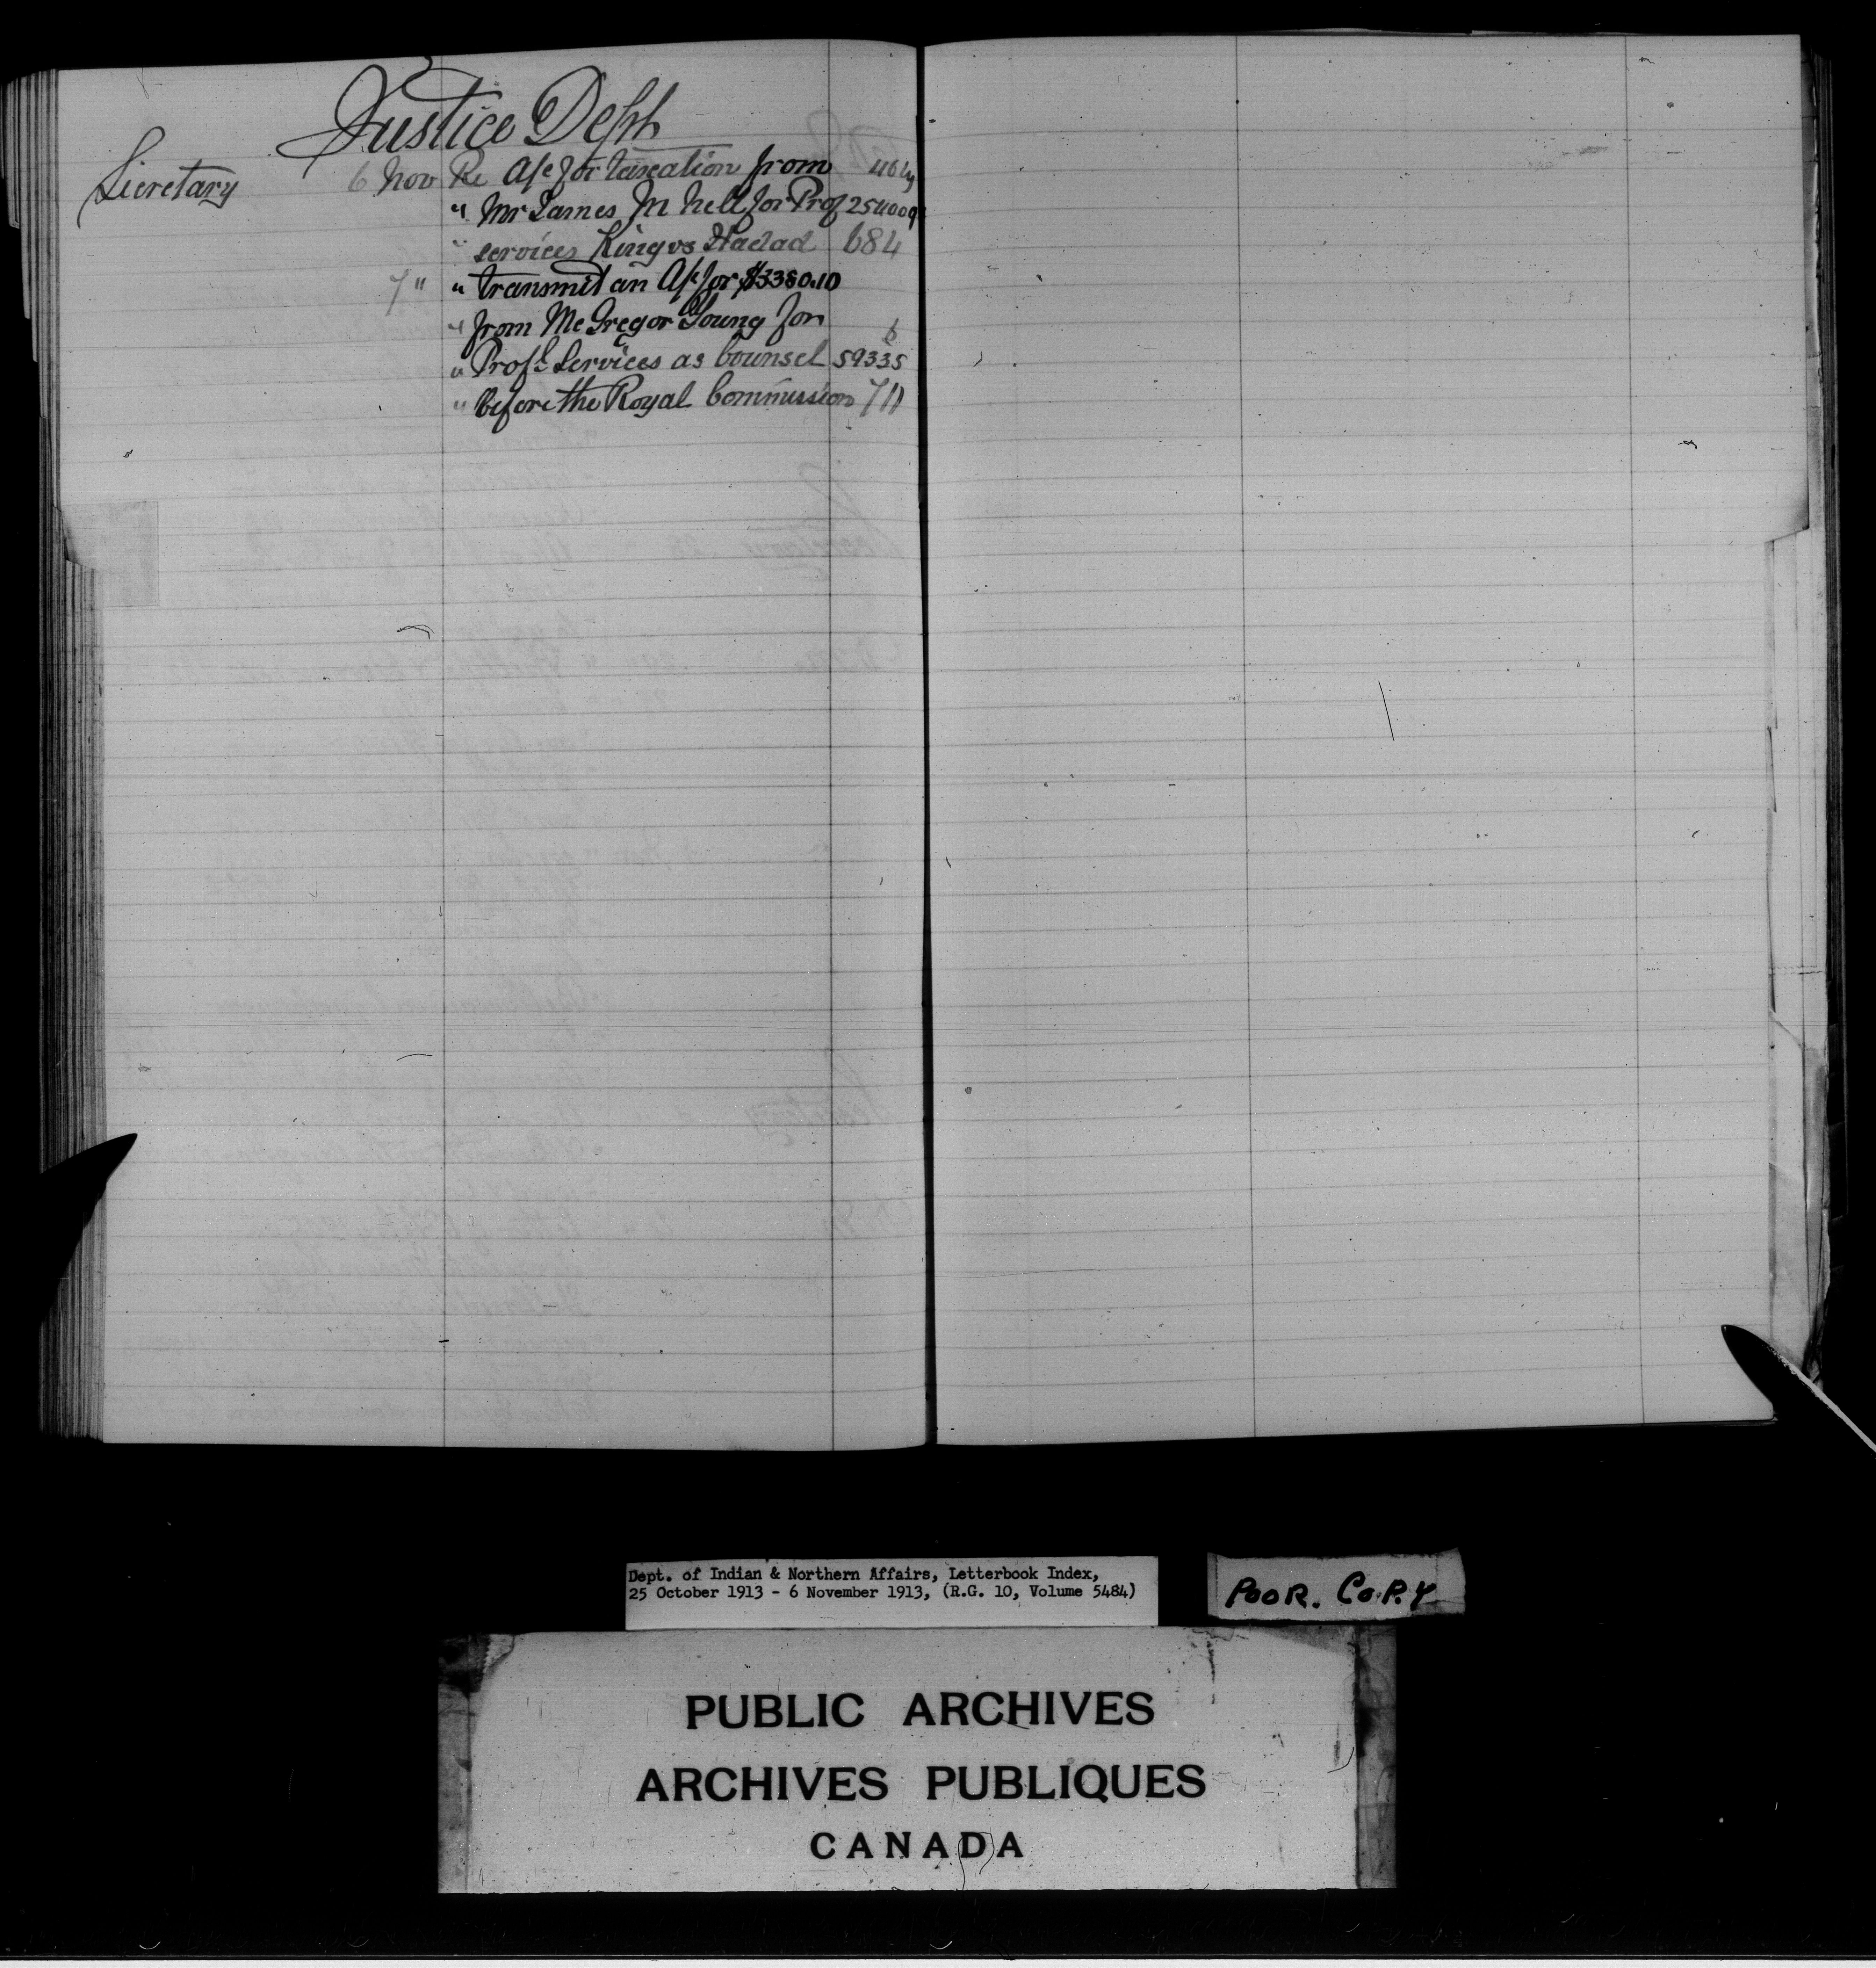 Justice Dept
Secretary 6 Nov Re A/c for taxation from
" Mr James M Nell for Prof 254009
" services King vs Hadad 684
7 " " transmit an A/c for $3380.10
" from McGregor Young for 6
" Profl Services as Counsel 59335
" before the Royal Commission 711
Dept. of Indian & Northern Affairs, Letterbook Index,
25 October 1913 - 6 November 1913, (R.G. 10, Volume 5484)
POOR. COPY
PUBLIC ARCHIVES
ARCHIVES PUBLIQUES
CANADA